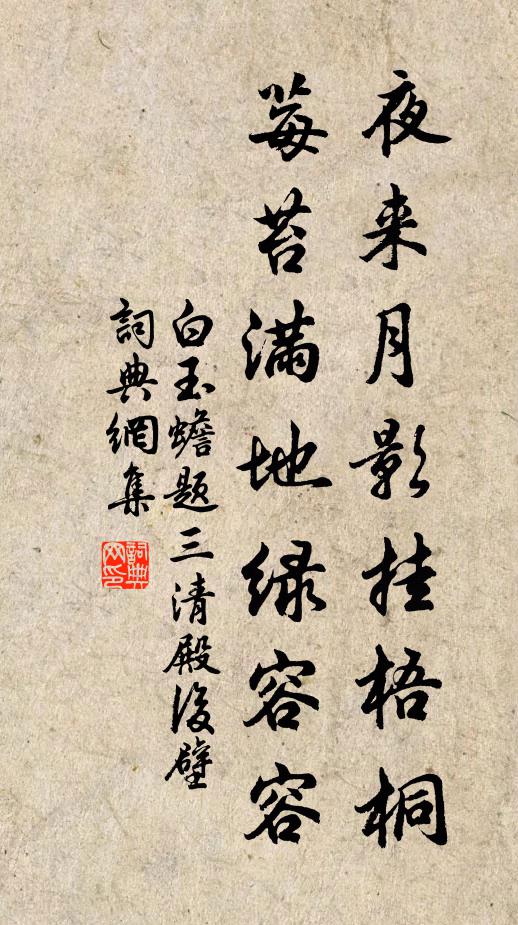 夜来月影挂梧桐
莓苔满地绿容容
白玉蟾题三清殿後壁
詞典網集
詞典网印